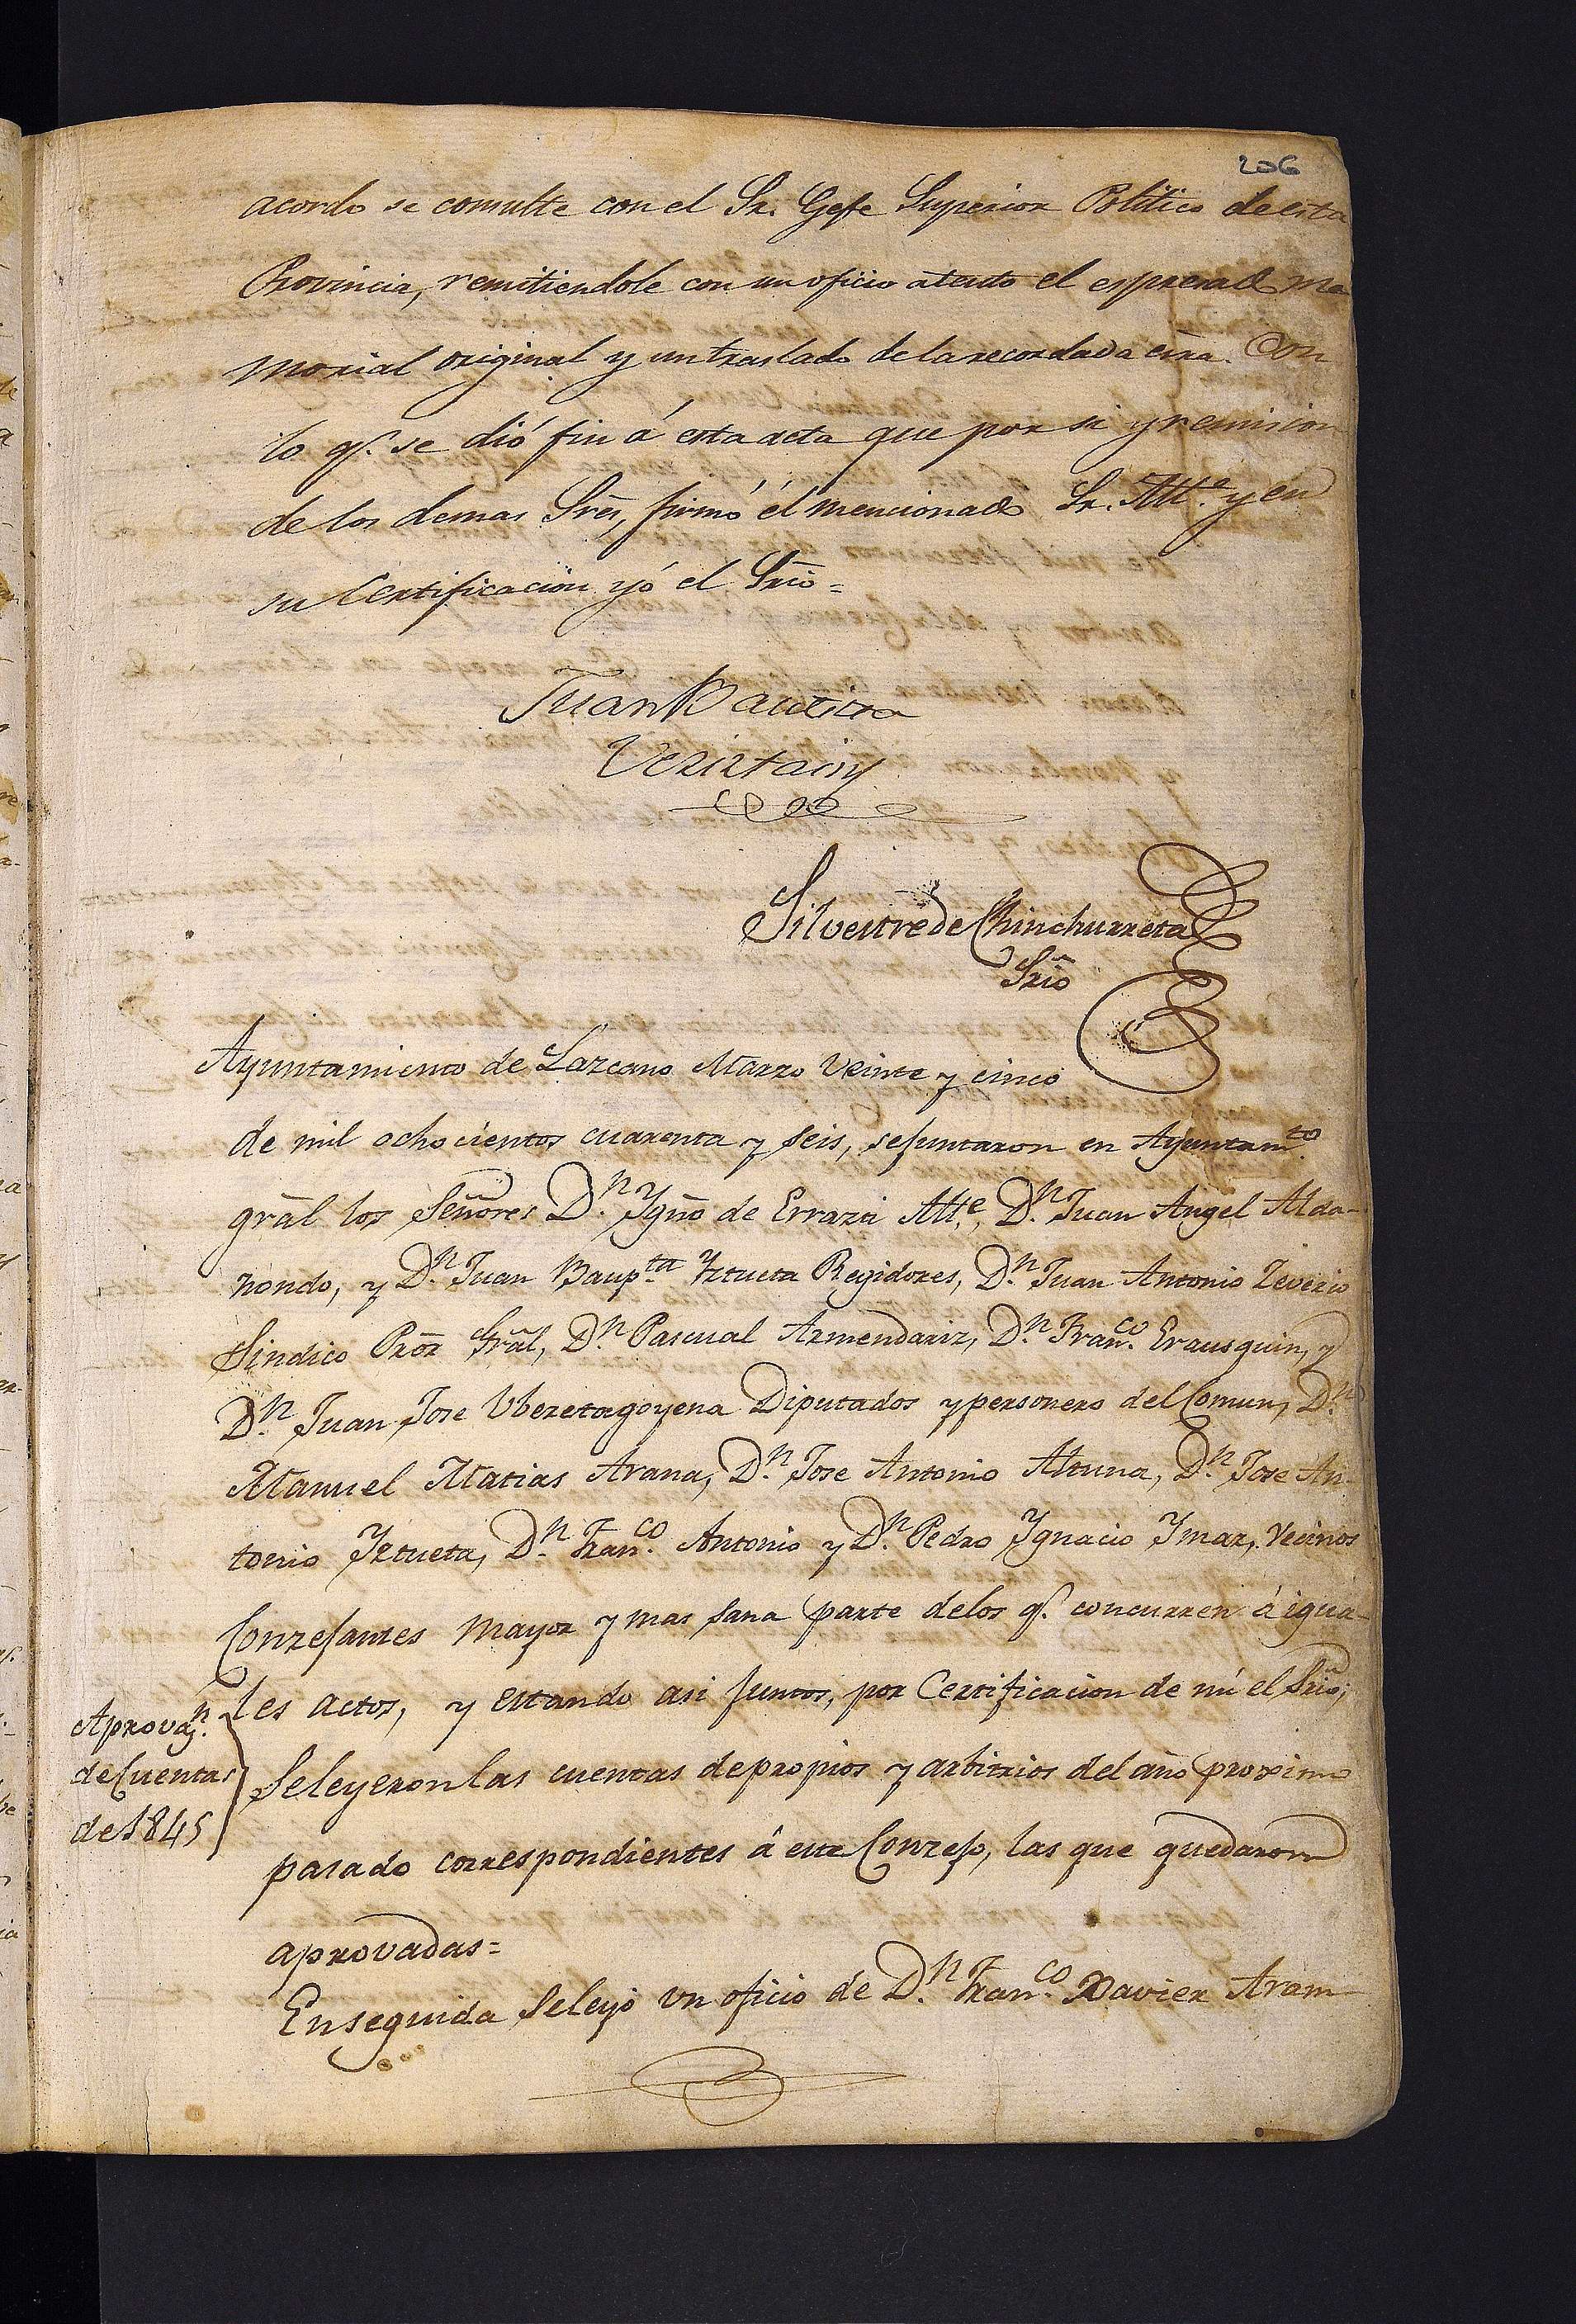 206
acordo se consulte con el Sr. Gefe Superior Politico de esta
Provincia, remitiendole con un oficio atento el espresado me
morial original y un traslado de la recordada ess̃ra. Con
lo q.e se dió fin á esta acta que por si y remision
de los demas Srẽs, firmó el mencionado Sr. Alt.e y en
su Certificacion yó el Srĩo=
Juan Bautista
Veriztain
Silvestre de Chinchurreta
Srĩo
Ayuntamiento de Lazcano Marzo Veinte y cinco
de mil ochocientos cuarenta y seis, se juntaron en Ayuntam.to
grãl los Señores D.n Ygño de Errazti Alt.e, D.n Juan Angel Alda-
nondo, y D.n Juan Baup.ta Yztueta Regidores, D.n Juan Antonio Zeverio
Sindico Prõr Grãl, D.n Pascual Armendariz, D.n Fran.co Erausquin, y
D.n Juan Jose Uberetagoyena Diputados y personero del Comun, D.n
Manuel Matias Arana, D.n Jose Antonio Altuna, D.n Jose An
tonio Yztueta, D.n Fran.co Antonio y D.n Pedro Ygnacio Ymaz, Vecinos
Conzejantes mayor y mas sana parte delos q.e concurren á igua-
les actos, y estando asi juntos, por Certificacion de mi el Srĩo,
Aprovaz.n
de Cuentas
de 1845
Seleyeron las cuentas de propios y arbitrios del año proximo
pasado correspondientes á este Conzejo, las que quedaron
aprovadas=
Enseguida Seleyó un oficio de D.n Fran.co Xavier Aram